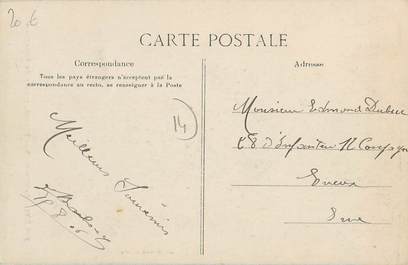 20 €
CARTE POSTALE
Correspondance
Tous les pays étrangers n'acceptent pas la
correspondance au recto, se renseigner à la Poste
14
Meilleurs Souvenirs
8
Adresse
Monsieur Edmond
28 d'Infanterie 12 Compagnie
Evreux
Eure